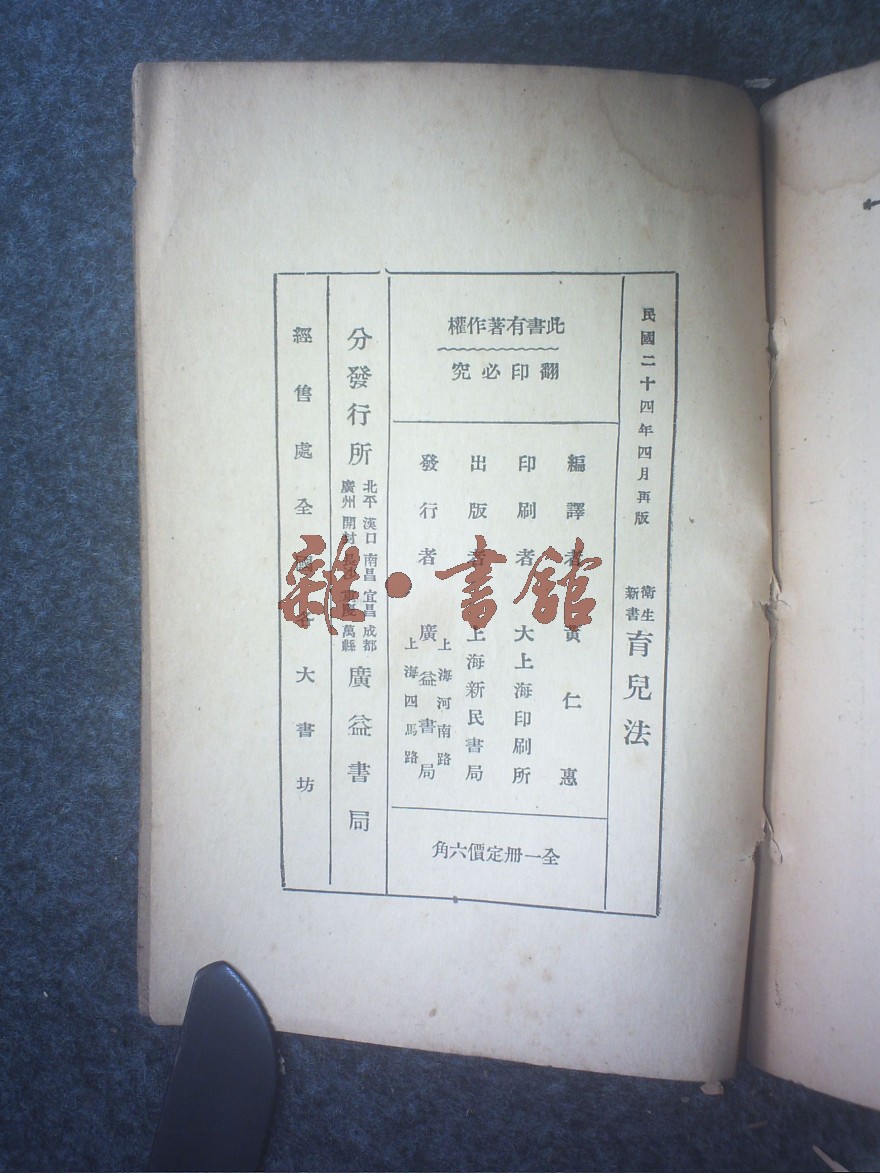 民國二十四年四月再版
衛生新書 育兒法
此書有著作權
翻印必究
編譯者 黃仁惠
印刷者 大上海印刷所
出版者 上海新民書局
發行者 廣益書局
上海河南路
上海四馬路
全一冊定價六角
分發行所
北平 漢口 南昌 宜昌 成都
廣州 開封 長沙 重慶 萬縣
廣益書局
經售處全國各大書坊
雜·書館